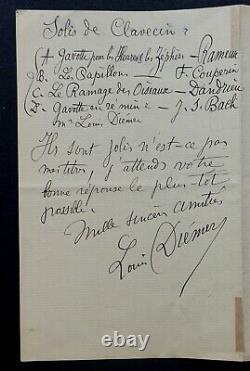 Solis de Clavecin :
A Gavotte pour les Heures et les Zéphirs — Rameau
B. Le Papillon — F. Couperin
C. Le Ramage des Oiseaux — Dandrieu
D. Gavotte en ré min. — J. S. Bach
Mr Louis Diémer
Ils sont jolis n'est-ce pas
j'attends votre
bonne réponse le plus tôt
possible.
Mille sincères amitiés
Louis Diémer